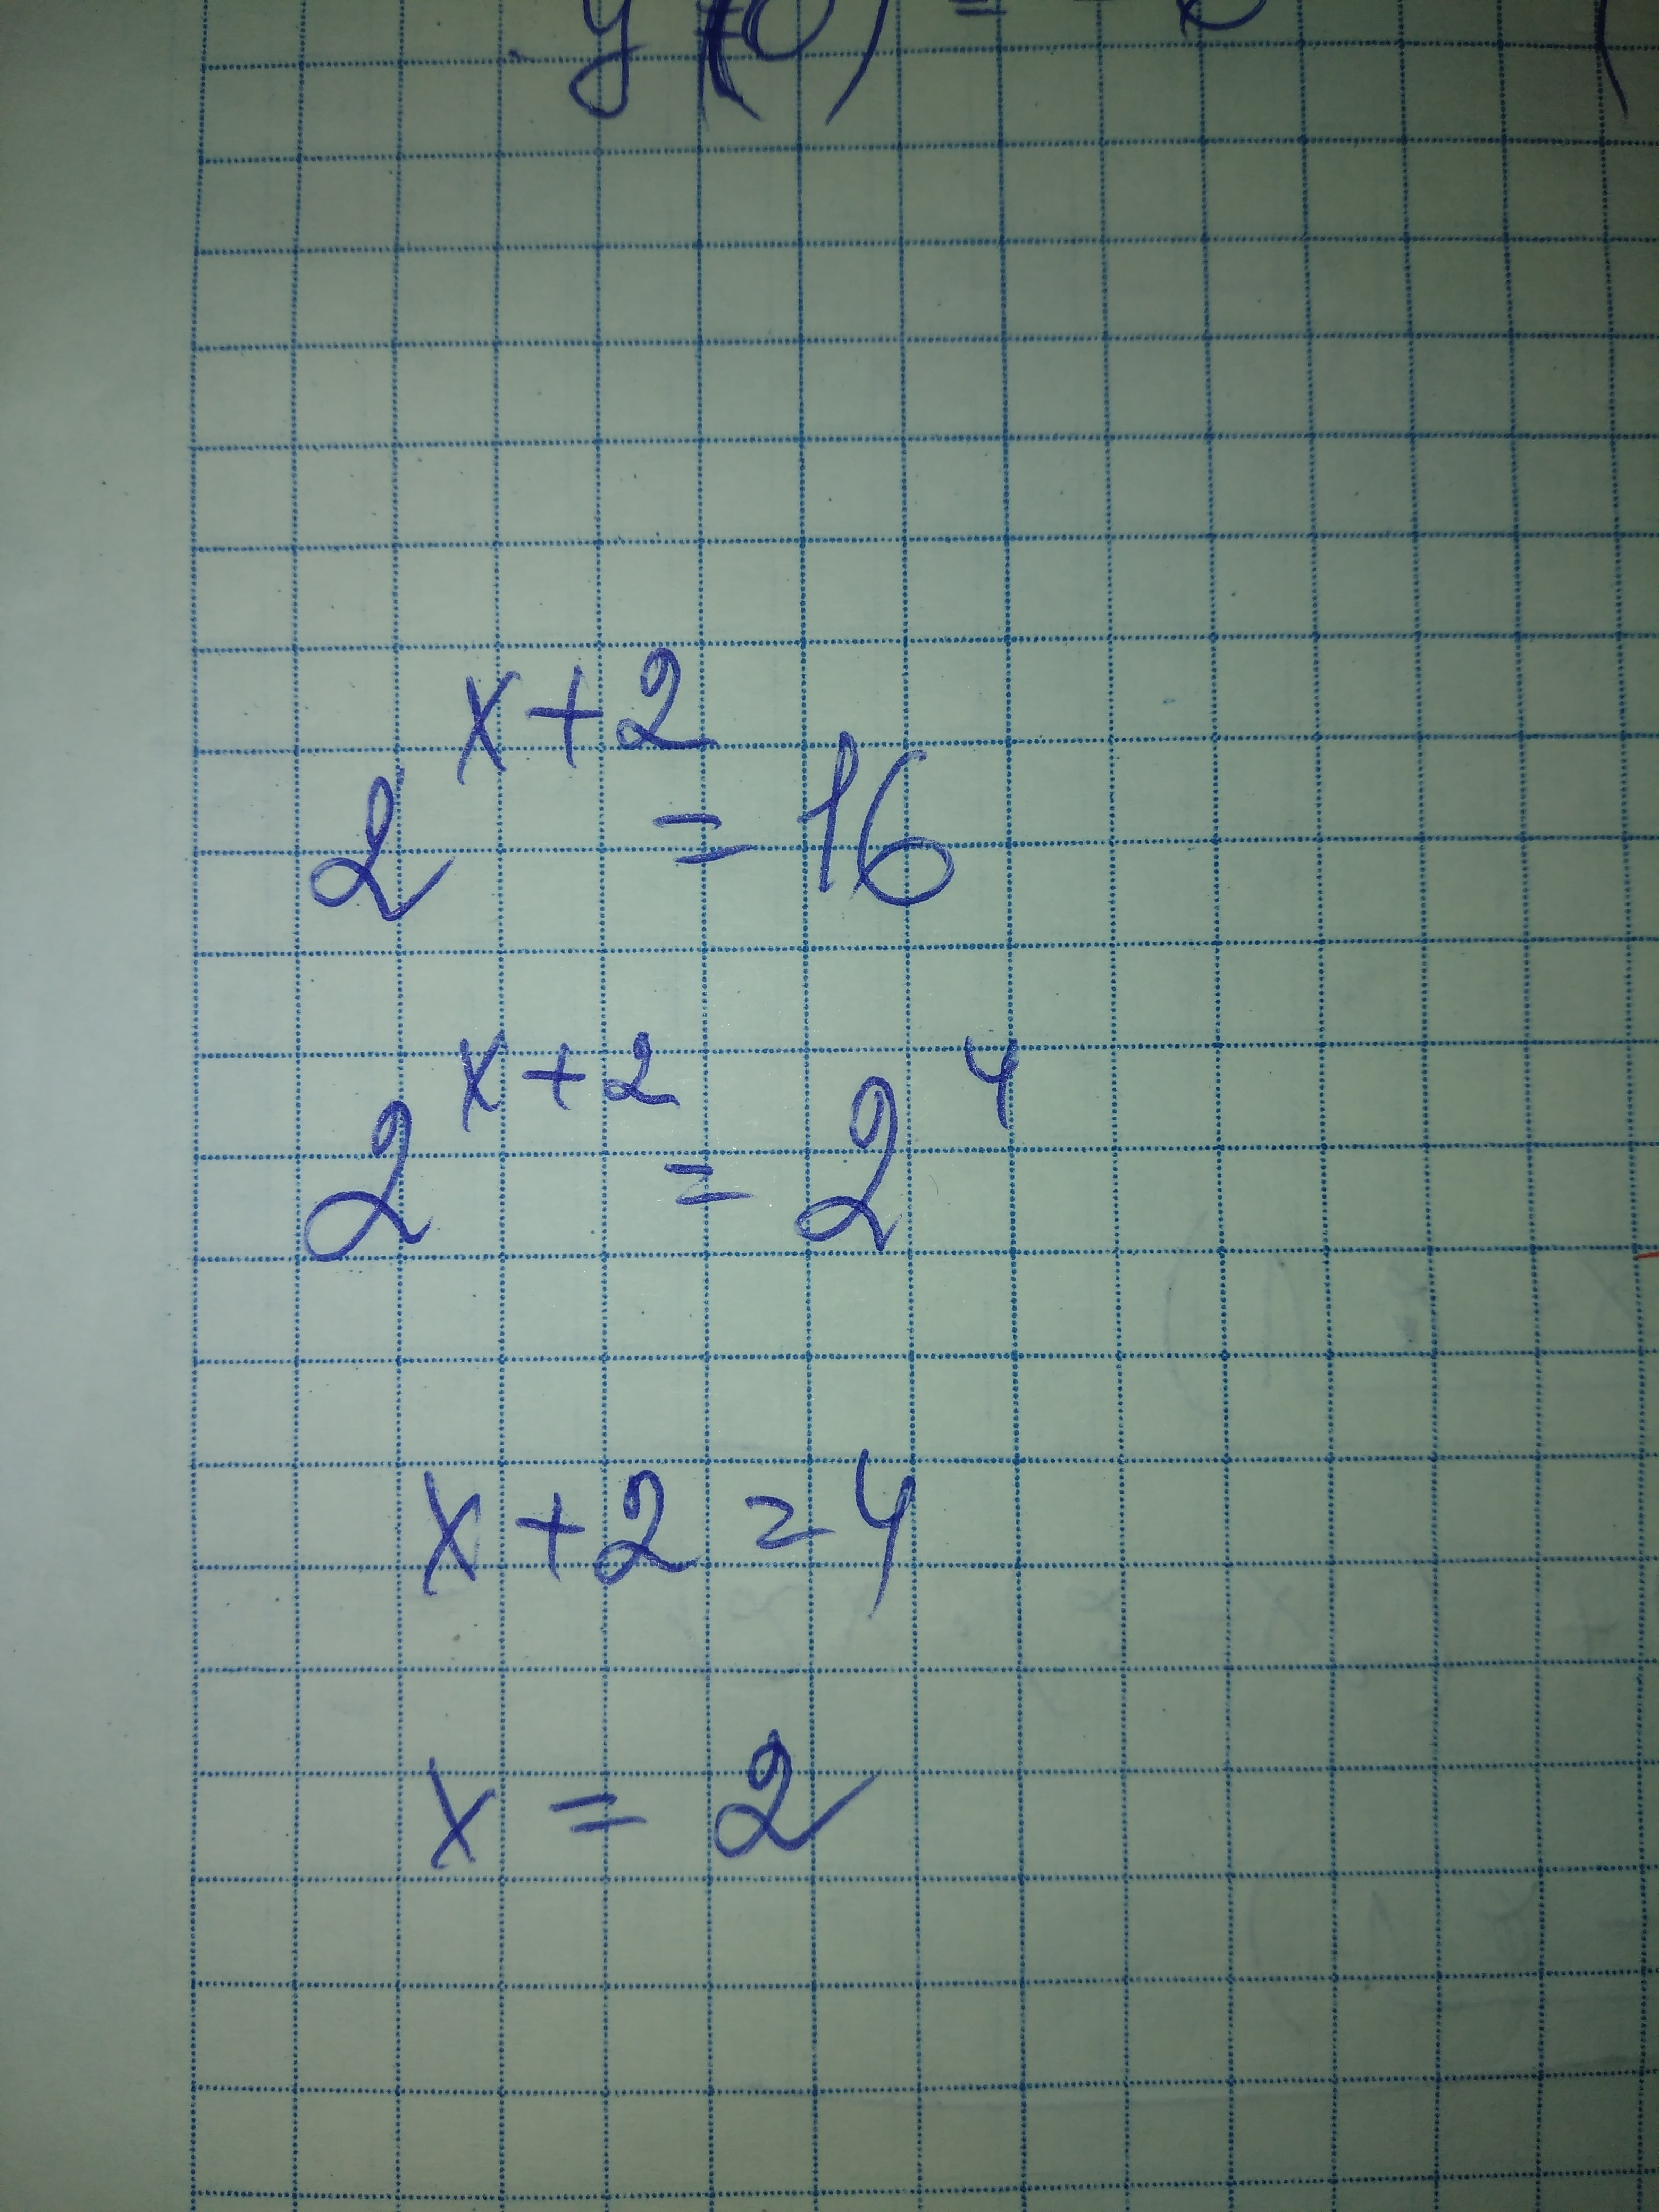 y(0) =
2^{x+2} = 16
2^{x+2} = 2^4
x + 2 = 4
x = 2